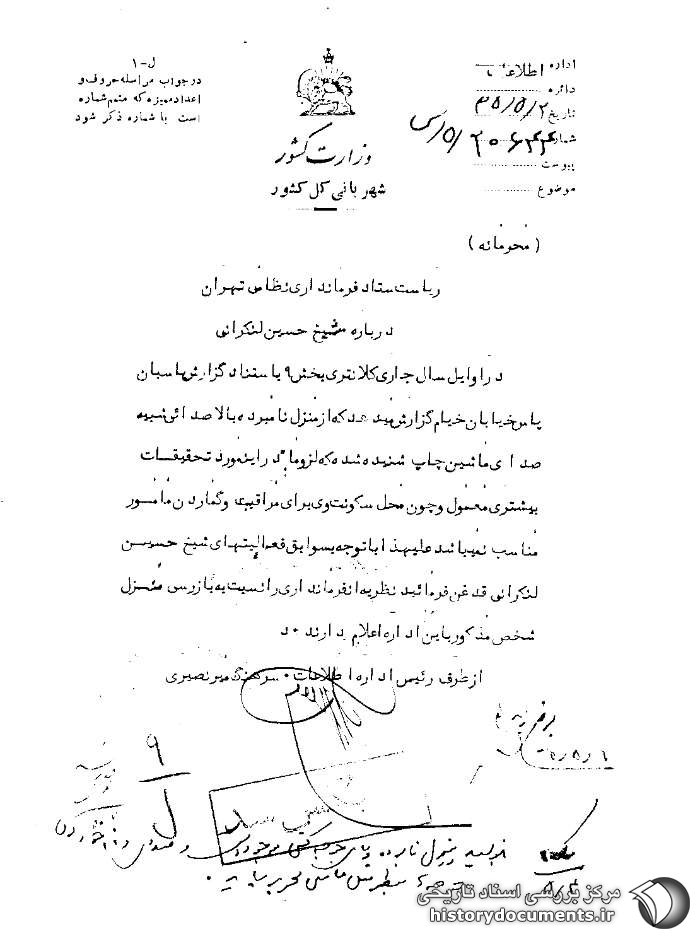 ل-۱
در جواب مراسله حروف و
اعداد ممیزه که متمم شماره
است با شماره ذکر شود
وزارت کشور
شهربانی کل کشور
اداره اطلاعات
دائره
تاریخ ۳۵/۵/۲
شماره ۲۰۶۴۴/۵/س
پیوست
موضوع
(محرمانه)
ریاست ستاد فرمانداری نظامی تهران
درباره شیخ حسین لنکرانی
در اوایل سال جاری کلانتری بخش ۹ باستناد گزارش پاسبان
پاس خیابان خیام گزارش میدهد که از منزل نامبرده بالا صدائی شبیه
صدای ماشین چاپ شنیده شده که لزوماً در اینمورد تحقیقات
بیشتری معمول و چون محل سکونت وی برای مراقبت و گماردن مأمور
مناسب نمیباشد علیهذا با توجه بسوابق فعالیتهای شیخ حسین
لنکرانی قدغن فرمائید نظریه آنفرمانداری را نسبت به بازرسی منزل
شخص مذکور باین اداره اعلام دارند. د
از طرف رئیس اداره اطلاعات. سرهنگ میرنصیری
۹
ل
مرکز بررسی اسناد تاریخی
historydocuments.ir